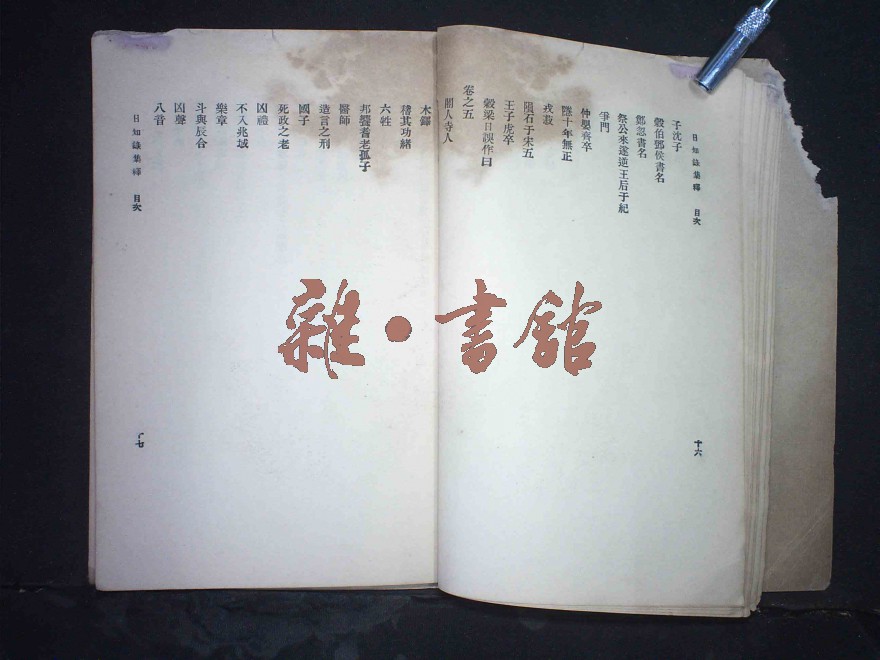 日知錄集釋 目次
子沈子
穀伯鄧侯書名
鄭忽書名
祭公來遂逆王后于紀
爭門
仲嬰齊卒
隱十年無正
戎菽
隕石于宋五
王子虎卒
穀梁日誤作曰
卷之五
閽人寺人
十六
木鐸
稽其功緒
六牲
邦饗耆老孤子
醫師
造言之刑
國子
死政之老
凶禮
不入兆域
樂章
斗與辰合
凶聲
八音
日知錄集釋 目次
十七
雜·書館